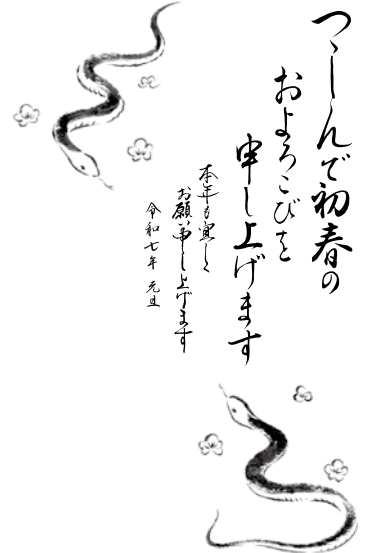 つゝしんで初春の
およろこびを
申し上げます
本年も宜しく
お願い申し上げます
令和七年 元旦